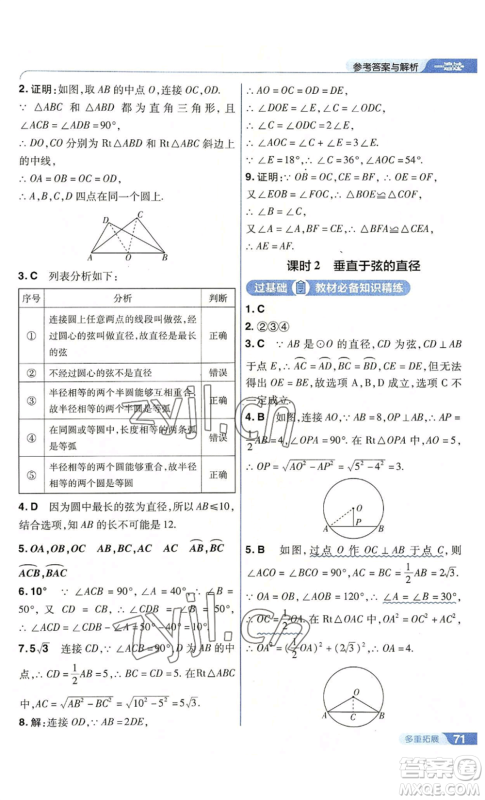 参考答案与解析 一遍过
2.证明:如图,取 AB 的中点 O,连接 OC,OD.
∵ △ABC 与 △ABD 都为直角三角形,且
∠ACB=∠ADB=90°,
∴ DO,CO 分别为 Rt△ABD 和 Rt△ABC 斜边上
的中线,
∴ OA=OB=OC=OD,
∴ A,B,C,D 四点在同一个圆上.
D C
A O B
3.C 列表分析如下:
序号 分析 判断
① 连接圆上任意两点的线段叫做弦,经过圆心的弦叫做直径,故直径是最长的弦 正确
② 不经过圆心的弦不是直径 错误
③ 半径相等的两个半圆能够互相重合,故半径相等的两个半圆是等弧 正确
④ 在同圆或等圆中长度相等的两条弧是等弧 错误
⑤ 半径相等的两个圆能够重合,故半径相等的两个圆是等圆 正确
4.D 因为圆中最长的弦为直径,所以 AB≤10,
结合选项,知 AB 的长不可能是 12.
5.OA,OB,OC AB,BC,AC AB,BC,AC
ACB,BAC
6.10° ∵ ∠ACB=90°,∠A=40°,∴ ∠B=
50°.∵ CD=CB,∴ ∠BCD=180°-2×50°=80°,
∴ ∠ACD=90°-80°=10°.
7.5√3 连接 CD,∵ ∠ACB=90°,D 为 AB 的中
点,∴ CD=1/2 AB.∵ CD=CB=5,∴ AB=2CD=10,
∴ AC=√(AB²-BC²)=√(10²-5²)=5√3.
8.解:连接 OD,∵ AB=2DE,
∴ AO=OC=OD=DE,
∴ ∠DOE=∠E,∠OCE=∠ODC,
又∵ ∠ODC=∠DOE+∠E=2∠E,
∴ ∠AOC=∠OCE+∠E=3∠E.
∵ ∠E=18°,∴ ∠C=36°,∠AOC=54°.
9.证明:∵ OB=OC,CE=BF,∴ OE=OF,
又∵ ∠EOB=∠FOC,∴ △BOE≌△COF,
∴ ∠OBE=∠OCF,又∵ OA=OB=OC=OD,
∴ ∠A=∠OBE,∠D=∠OCF,∴ ∠A=∠D.
又∵ ∠AOF=∠DOE,∴ △AOF≌△DOE,
∴ AF=DE.
课时2 垂直于弦的直径
过基础 教材必备知识精练
1.C
2.②③④
3.C ∵ AB 是⊙O 的直径,弦 CD⊥AB
于点 E,∴ AC=AD,BC=BD,CE=DE.无法
得出 OE=BE,故选项 A,B,D 成立,C 不
一定成立.
4.B 如图,连接 OA,∵ OP⊥AB,∴ AP=
1/2 AB=4,∠OPA=90°.在 Rt△OPA 中,OA=5,
∴ OP=√(AO²-AP²)=√(5²-4²)=3.
O
A P B
5.B 如图,过点 O 作 OC⊥AB 于点 C,则
∠ACO=∠BCO=90°,AC=BC=1/2 AB=√3.
∵ OA=OB,∠AOB=120°,∴ ∠A=∠B=30°,
∴ OC=1/2 OA.在 Rt△OAC 中,OA²=OC²+AC²,
∴ OA²=(1/2 OA)²+(√3)²,∴ OA=2.故选 B.
O
A C B
zyjl.cn
zyjl.cn
多重拓展 71
答案圈
MXQE.COM